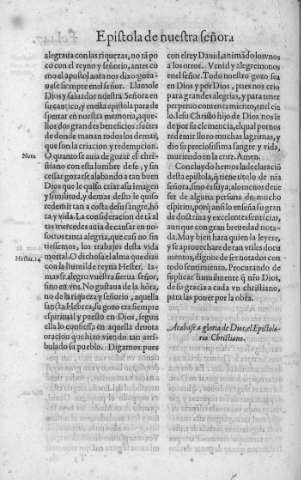 Epistola de nuestra señora
alegraua con las riquezas, no tāpo
co con el reyno y señorio, antes co
mo el apostol santo nos dixo goza-
ua se siempre en el señor. Llamole
Dios y saluador nuestra Señora en
su cantico, y en esta epistola para de
spertar en nuestra memoria, aque-
llos dos grandes beneficios: fuētes
de donde manan todos los demas,
que son la criacion y redempcion.
Nota
O quanto se auia de gozar el chri-
stiano con esta lumbre de fe, y sin
cessar gozarse alabando a tan buen
Dios que le quiso criar a su imagen
y similitud, y demas desto le quiso
redemir tan a costa de su sangre, hō
ra y vida. La consideracion de tā al
tas mercedes auia de causar en no-
sotros tanta alegria, que casi no sin
tiessemos, los trabajos desta vida
Hester. 14
mortal. O dichosa el alma que dixe
re con la humilde reyna Hester. Ia-
mas se alegro vuestra sierua señor,
sino en vos. No gustaua de la hōra,
no de la riqueza y señorio, aquella
sancta Hebrea, su gozo era siempre
espiritual y puesto en Dios, segun
ella lo confiessa en aquella deuota
oracion que hizo viendo tan atri-
bulado a su pueblo. Digamos pues
con el rey Dauid, animādo los vnos
a los otros. Venid y alegremonos
en el señor. Todo nuestro gozo sea
en Dios y por Dios, pues nos crio
para grandes alegrias, y para tener
perpetuo contentamiento, en el cie
lo. Iesu Christo hijo de Dios nos le
de por su clemencia, el qual por nos
redemir lloro muchas lagrimas, y
dio su preciosissima sangre y vida,
muriendo en la cruz. Amen.
Concluydo hemos la declaració
desta epistola, q̄ tiene titulo de n̄ra
señora, sino es suya, alomenos deue
ser de alguna persona de mucho
espiritu, porq̄ ansi lo enseña su gran
de doctrina y excelentes sentēcias,
aunque con gran breuedad nota-
da. Muy bien hara quien la leyere,
y se aprouechare de tan vtiles docu
mentos, dignos de ser notados con
todo sentimiento. Procurando de
suplicar humilmente q̄ n̄ro Dios,
de su gracia a cada vn christiano,
para las poner por la obra.
Acabose a gloria de Dios, el Epistola-
rio Christiano.